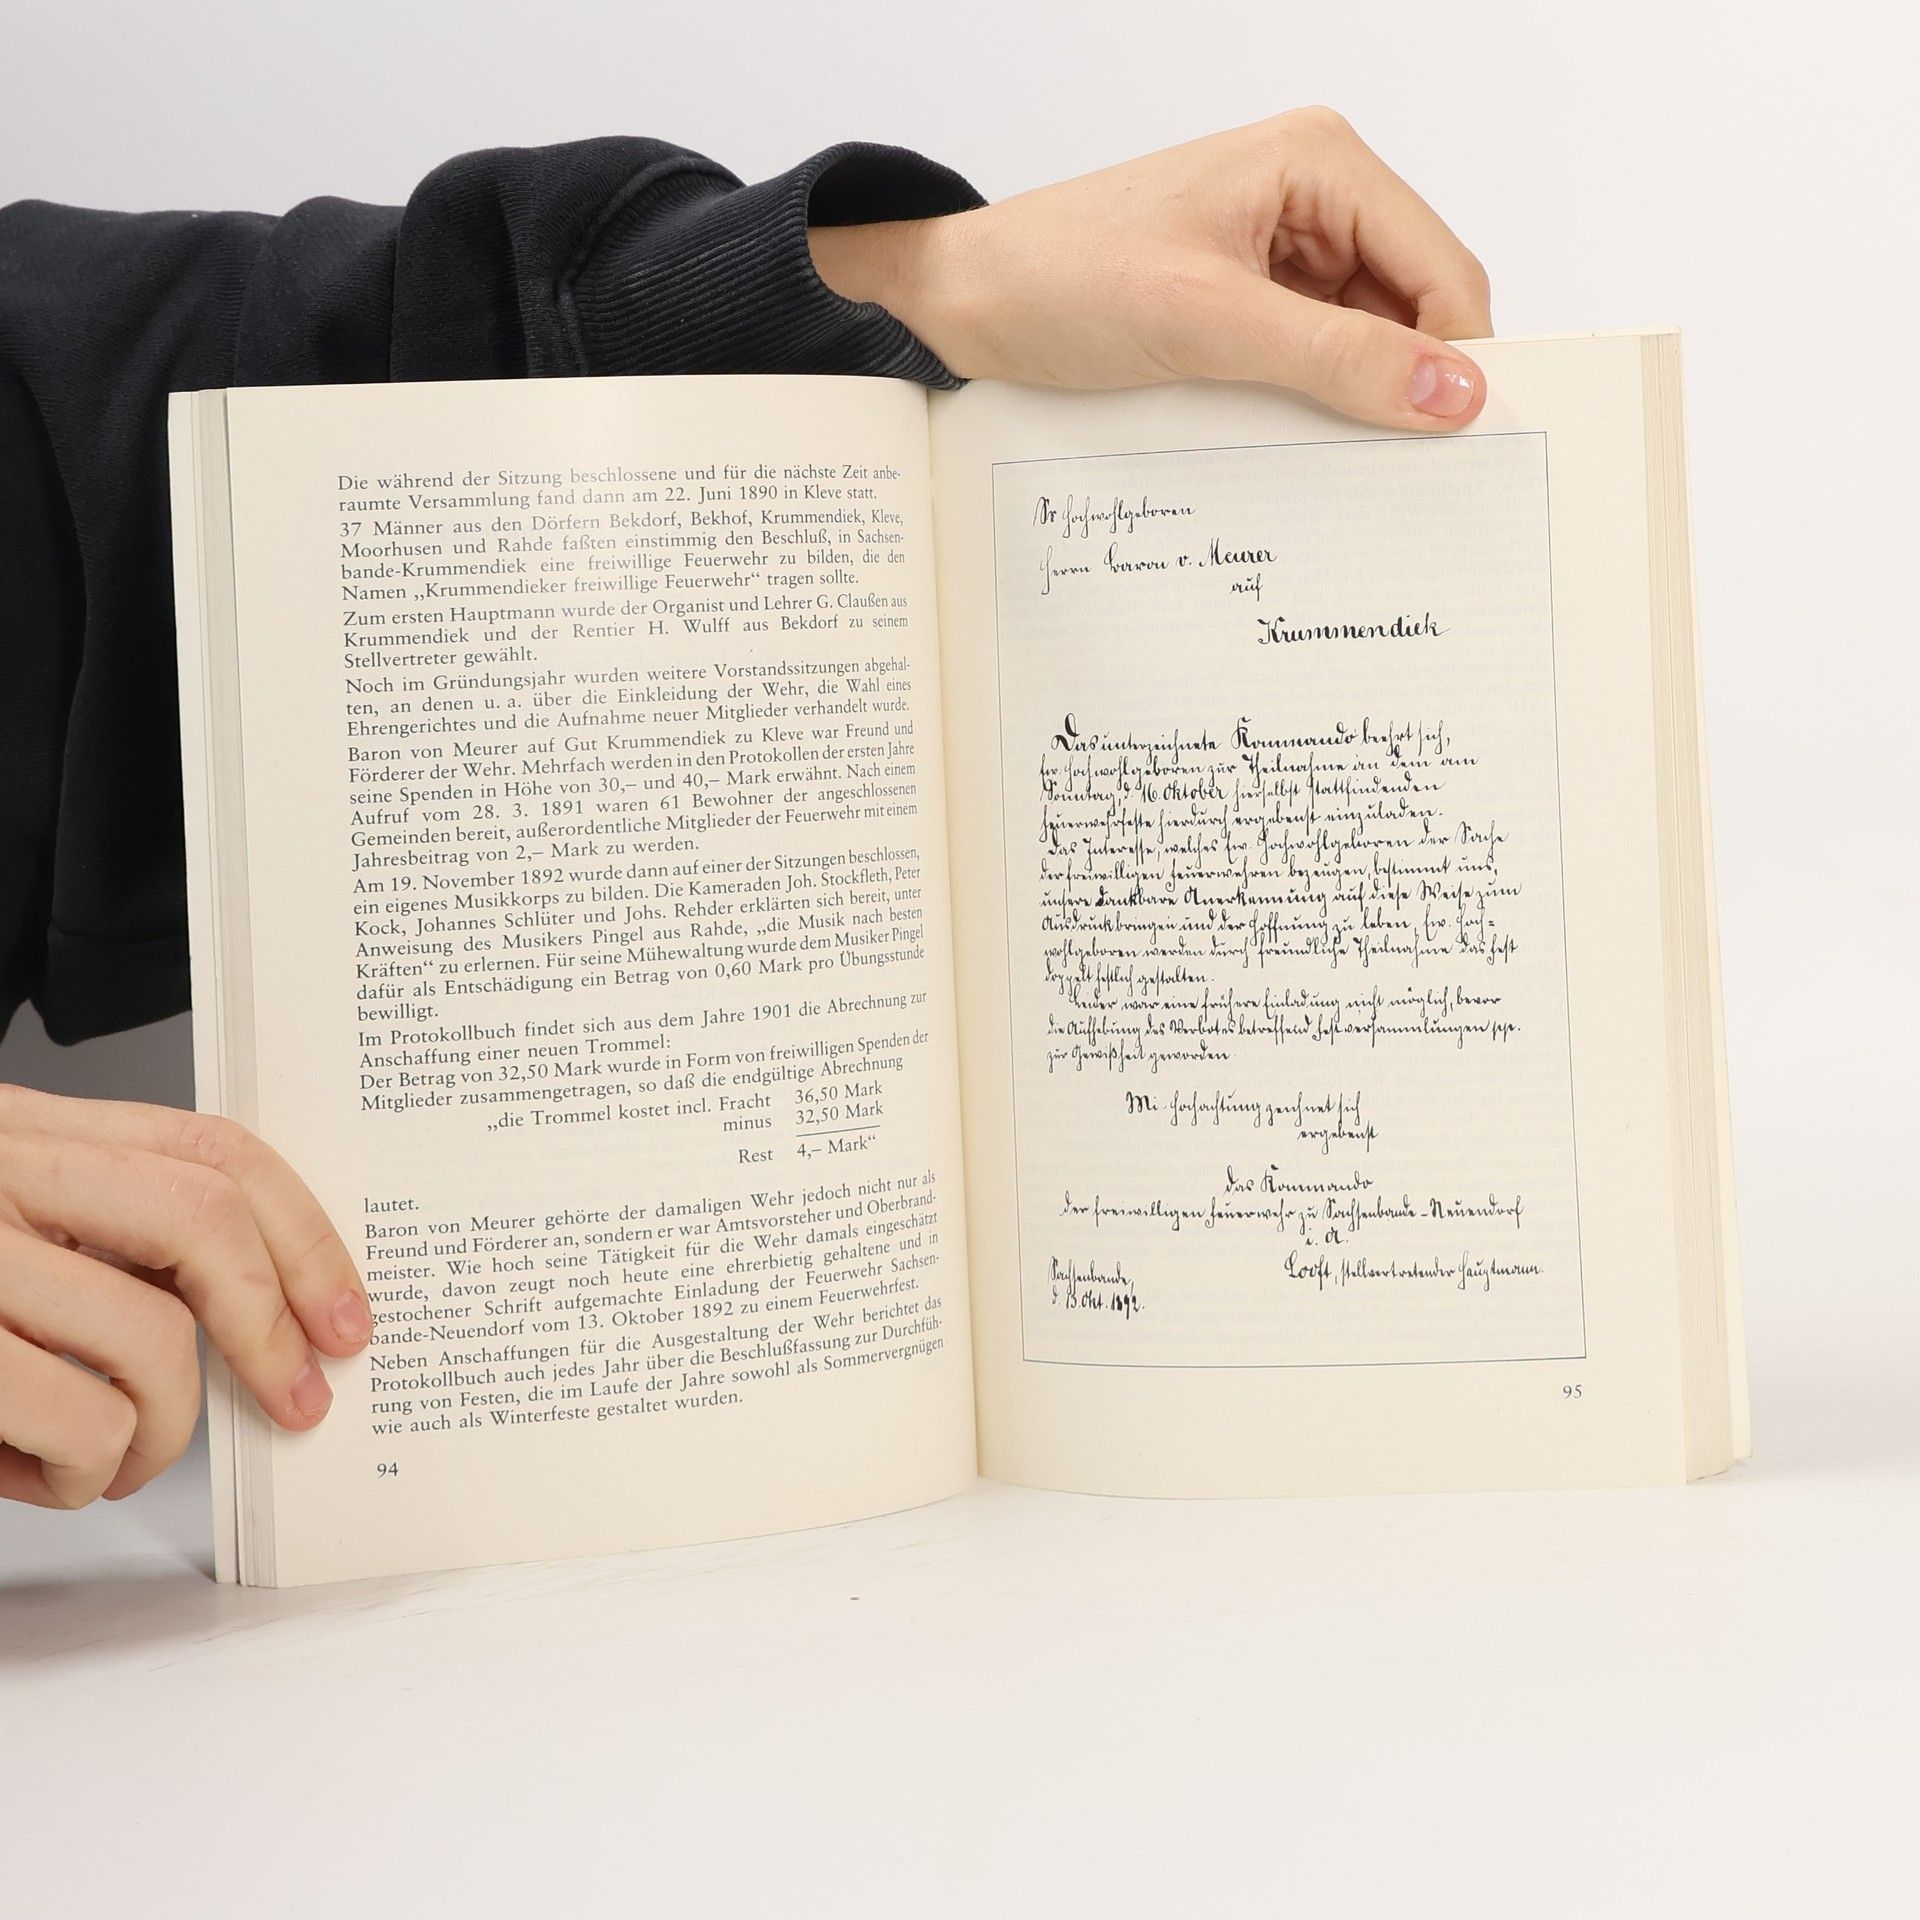 Die während der Sitzung beschlossene und für die nächste Zeit anbe-
raumte Versammlung fand dann am 22. Juni 1890 in Kleve statt.
37 Männer aus den Dörfern Bekdorf, Bekhof, Krummendiek, Kleve,
Moorhusen und Rahde faßten einstimmig den Beschluß, in Sachsen-
bande-Krummendiek eine freiwillige Feuerwehr zu bilden, die den
Namen „Krummendieker freiwillige Feuerwehr“ tragen sollte.
Zum ersten Hauptmann wurde der Organist und Lehrer G. Claußen aus
Krummendiek und der Rentier H. Wulff aus Bekdorf zu seinem
Stellvertreter gewählt.
Noch im Gründungsjahr wurden weitere Vorstandssitzungen abgehal-
ten, an denen u. a. über die Einkleidung der Wehr, die Wahl eines
Ehrengerichtes und die Aufnahme neuer Mitglieder verhandelt wurde.
Baron von Meurer auf Gut Krummendiek zu Kleve war Freund und
Förderer der Wehr. Mehrfach werden in den Protokollen der ersten Jahre
seine Spenden in Höhe von 30,– und 40,– Mark erwähnt. Nach einem
Aufruf vom 28. 3. 1891 waren 61 Bewohner der angeschlossenen
Gemeinden bereit, außerordentliche Mitglieder der Feuerwehr mit einem
Jahresbeitrag von 2,– Mark zu werden.
Am 19. November 1892 wurde dann auf einer der Sitzungen beschlossen,
ein eigenes Musikkorps zu bilden. Die Kameraden Joh. Stockfleth, Peter
Kock, Johannes Schlüter und Johs. Rehder erklärten sich bereit, unter
Anweisung des Musikers Pingel aus Rahde, „die Musik nach besten
Kräften“ zu erlernen. Für seine Mühewaltung wurde dem Musiker Pingel
dafür als Entschädigung ein Betrag von 0,60 Mark pro Übungsstunde
bewilligt.
Im Protokollbuch findet sich aus dem Jahre 1901 die Abrechnung zur
Anschaffung einer neuen Trommel:
Der Betrag von 32,50 Mark wurde in Form von freiwilligen Spenden der
Mitglieder zusammengetragen, so daß die endgültige Abrechnung
„die Trommel kostet incl. Fracht 36,50 Mark
minus 32,50 Mark
Rest 4,– Mark“
lautet.
Baron von Meurer gehörte der damaligen Wehr jedoch nicht nur als
Freund und Förderer an, sondern er war Amtsvorsteher und Oberbrand-
meister. Wie hoch seine Tätigkeit für die Wehr damals eingeschätzt
wurde, davon zeugt noch heute eine ehrerbietig gehaltene und in
gestochener Schrift aufgemachte Einladung der Feuerwehr Sachsen-
bande-Neuendorf vom 13. Oktober 1892 zu einem Feuerwehrfest.
Neben Anschaffungen für die Ausgestaltung der Wehr berichtet das
Protokollbuch auch jedes Jahr über die Beschlußfassung zur Durchfüh-
rung von Festen, die im Laufe der Jahre sowohl als Sommervergnügen
wie auch als Winterfeste gestaltet wurden.
94
Sr Hochwohlgeboren
Herrn Baron v. Meurer
auf
Krummendiek
Das unterzeichnete Kommando beehrt sich,
Ew. Hochwohlgeboren zur Theilnahme an dem am
Sonntag, d. 16. Oktober hierselbst stattfindenden
Feuerwehrfeste hierdurch ergebenst einzuladen.
Das Interesse, welches Ew. Hochwohlgeboren der Sache
der freiwilligen Feuerwehren bezeugen, bestimmt uns,
unsere dankbare Anerkennung auf diese Weise zum
Ausdruck bringen und der Hoffnung zu leben, Ew. Hoch-
wohlgeboren werden durch freundliche Theilnahme das Fest
doppelt festlich gestalten.
Leider war eine frühere Einladung nicht möglich, bevor
die Aufhebung des Verbotes betreffend Festversammlungen pp.
zur Gewißheit geworden.
Mi Hochachtung zeichnet sich
ergebenst
das Kommando
der freiwilligen Feuerwehr zu Sachsenbande-Neuendorf
i. A.
Looft, stellvertretender Hauptmann.
Sachsenbande,
d. 13. Okt. 1892.
95